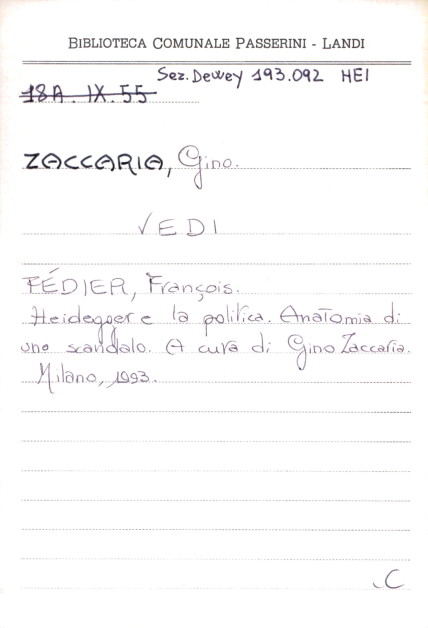 BIBLIOTECA COMUNALE PASSERINI - LANDI
Sez. Dewey 193.092 HEI
18A. IX. 55
ZACCARIA, Gino.
VEDI
FÉDIER, François.
Heidegger e la politica. Anatomia di
uno scandalo. A cura di Gino Zaccaria.
Milano, 1993.
C